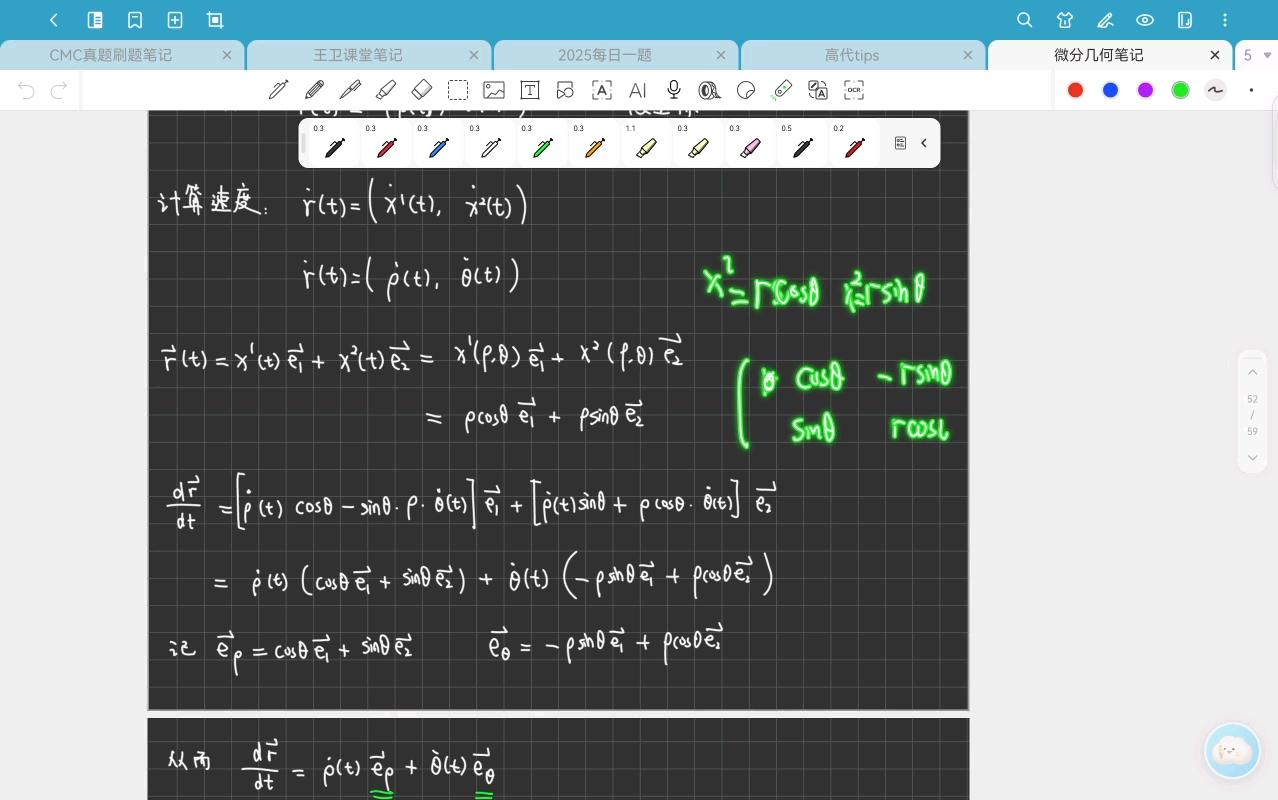 CMC真题刷题笔记 王卫课堂笔记 2025每日一题 高代tips 微分几何笔记 5
T A AI A OCR
0.3 0.3 0.3 0.3 0.3 0.3 1.1 0.3 0.3 0.5 0.2
计算速度: ṙ(t)=(ẋ¹(t), ẋ²(t))
ṙ(t)=(ρ̇(t), θ̇(t))
x²=rcosθ x²=rsinθ
r⃗(t)=x¹(t)e⃗₁+x²(t)e⃗₂=x¹(ρ,θ)e⃗₁+x²(ρ,θ)e⃗₂
=ρcosθe⃗₁+ρsinθe⃗₂
( cosθ -rsinθ
sinθ rcos
52
/
59
dr⃗/dt=[ρ̇(t)cosθ-sinθ·ρ·θ̇(t)]e⃗₁+[ρ̇(t)sinθ+ρcosθ·θ̇(t)]e⃗₂
=ρ̇(t)(cosθe⃗₁+sinθe⃗₂)+θ̇(t)(-ρsinθe⃗₁+ρcosθe⃗₂)
记 e⃗ρ=cosθe⃗₁+sinθe⃗₂ e⃗θ=-ρsinθe⃗₁+ρcosθe⃗₂
从而 dr⃗/dt=ρ̇(t)e⃗ρ+θ̇(t)e⃗θ